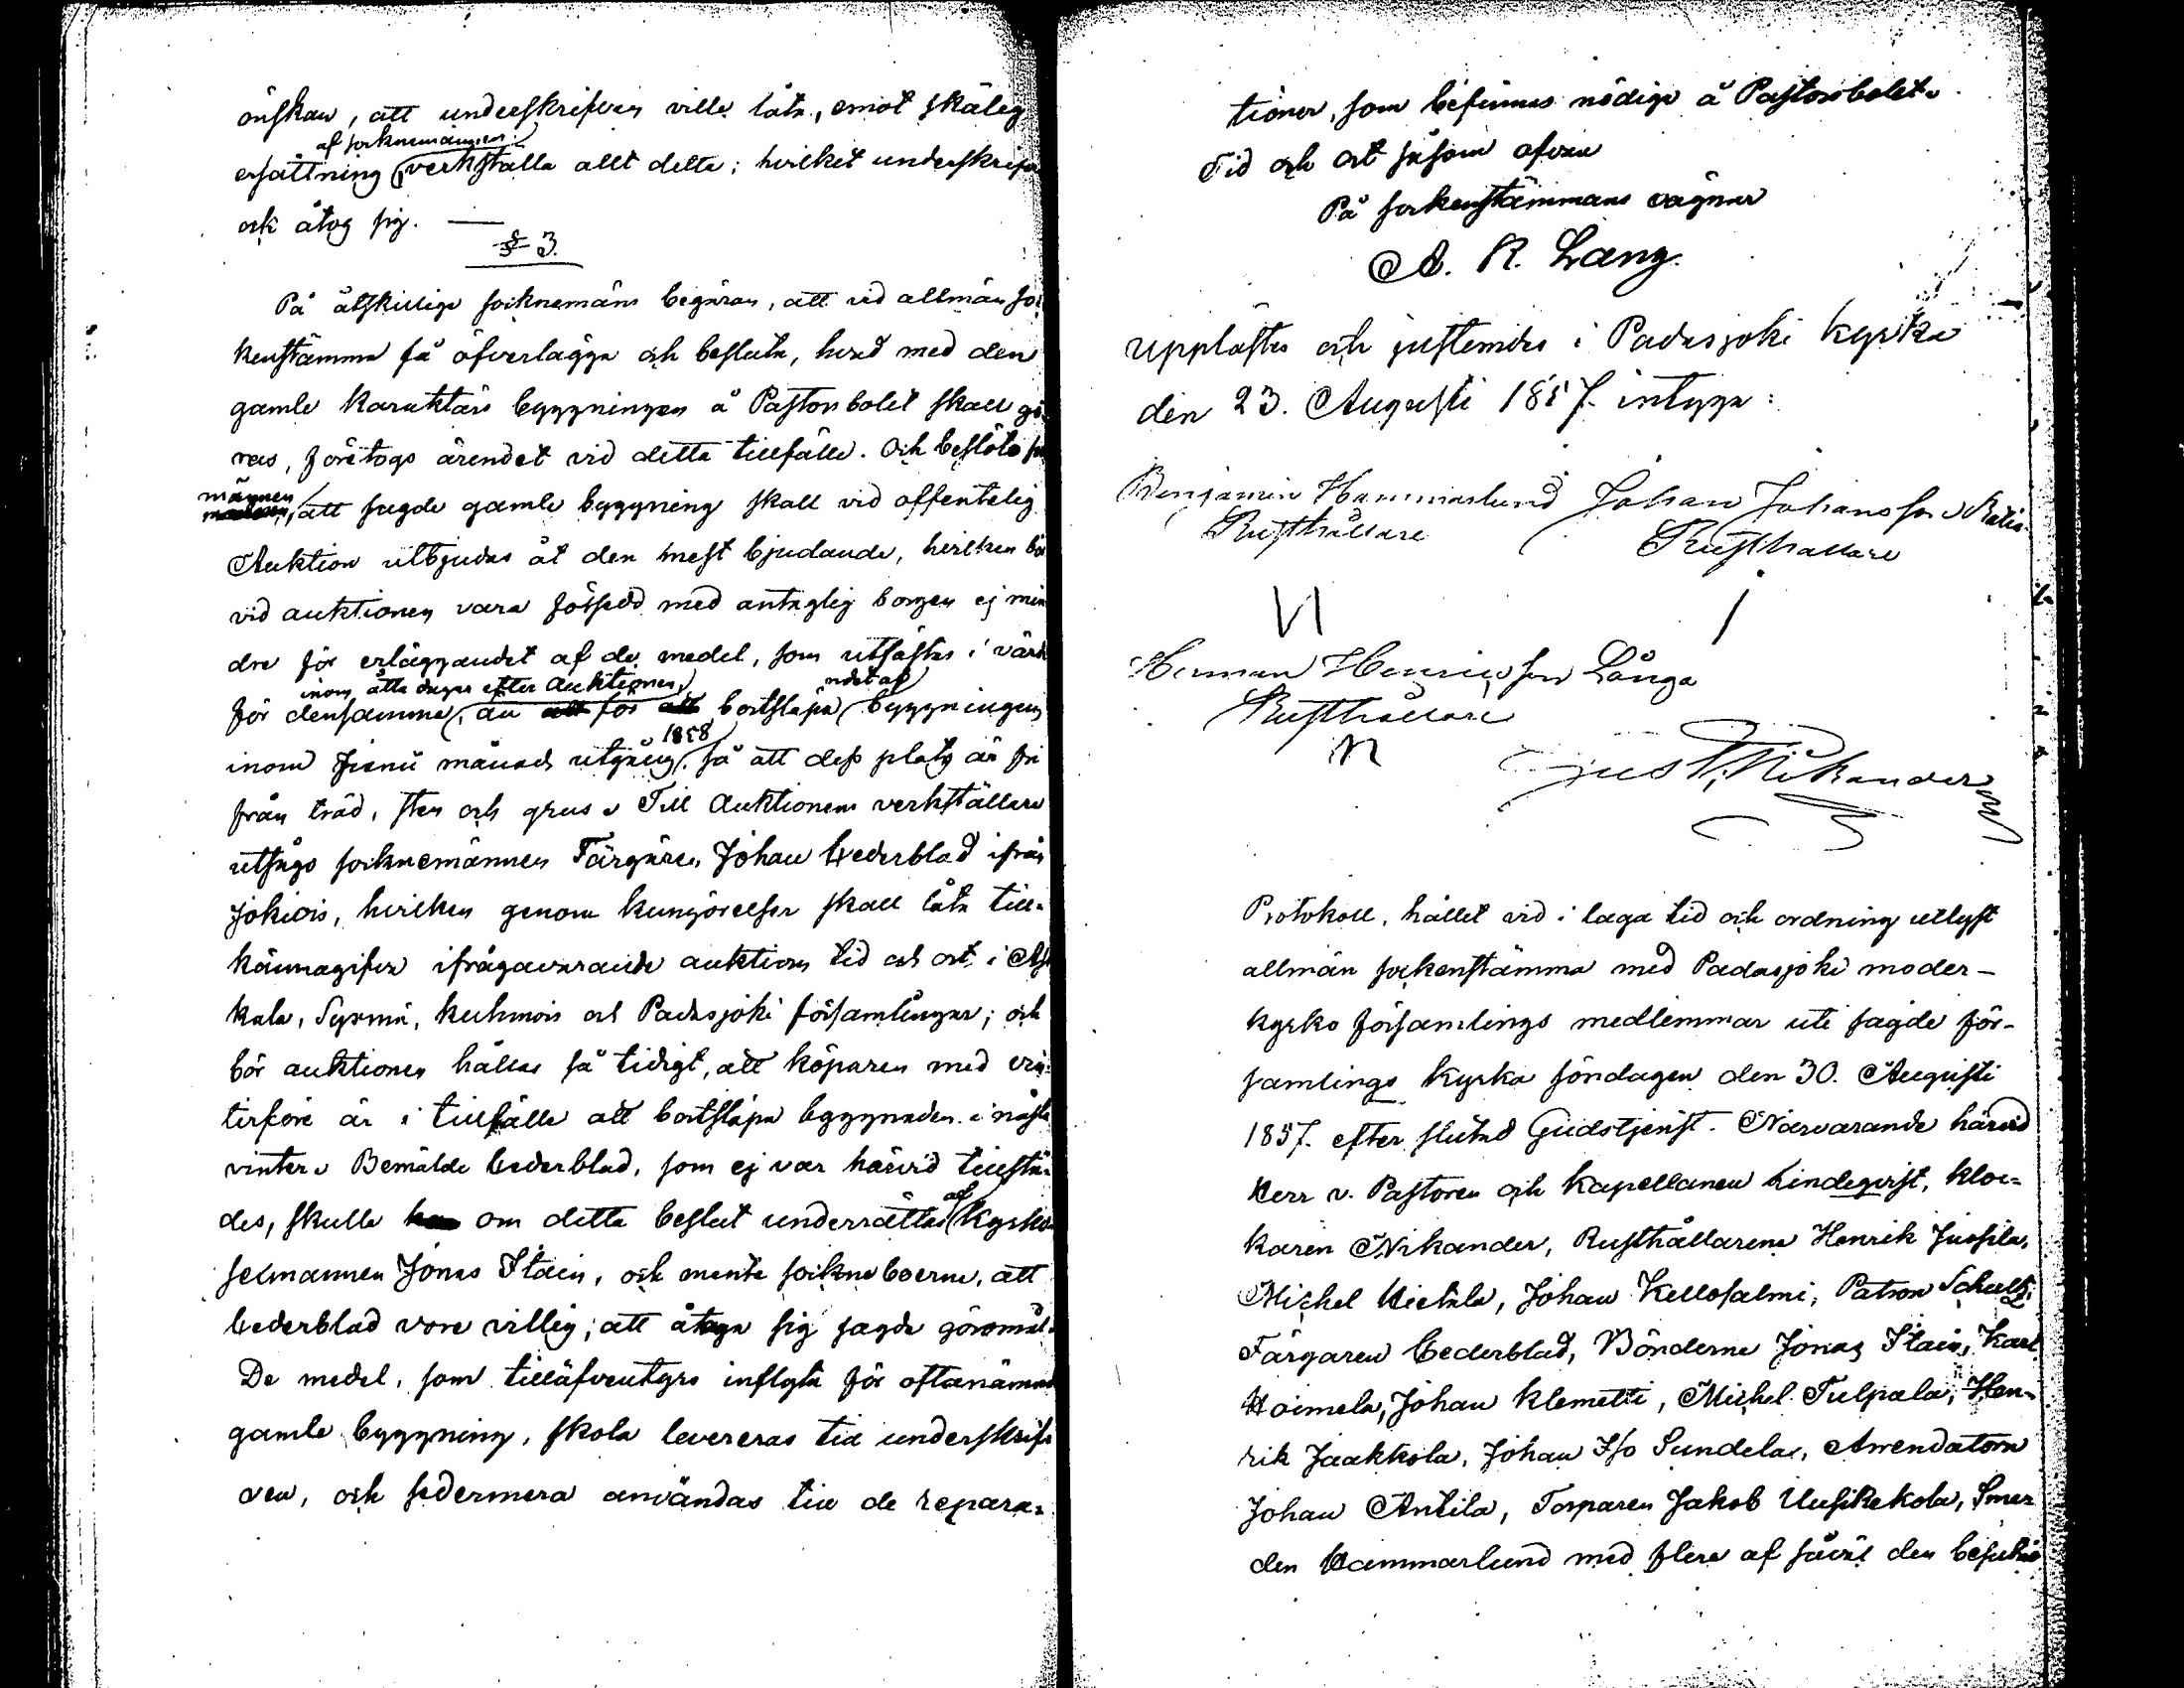 önskan, att underskrifven ville låta, emot skälig
af socknemännen
ersättning verkställa allt detta; hvilket underskrifv
ock åtog sig. —
§ 3.
På åtskillige socknemäns begäran, att vid allmän soc
kenstämma få öfverlägga och besluta, hvad med den
gamle karaktärs byggningen å Pastorsbolet skall gö
ras, företogs ärendet vid detta tillfälle. Och beslöto
männen att sagde gamle byggning skall vid offentelig
Auktion utbjudas åt den mest bjudande, hvilken bör
vid auktionen vara försedd med antaglig borgen ej min
dre för erläggandet af de medel, som utfästes i värde
inom åtta dagar efter Auktionen, ndet af
för densamma, än för bortsläpa byggningen
1858
inom Junii månads utgång, så att dess plats är fri
från träd, sten och grus. Till Auktionens verkställare
utsågo socknemännen Färgaren Johan Cederblad ifrån
Jokiois, hvilken genom kungörelser skall låta till-
kännagifva ifrågavarande auktions tid och ort i As
kala, Sysmä, Kuhmois och Padasjoki församlingar; och
bör auktionen hållas så tidigt, att köparen med vin-
terföre är i tillfälle att bortsläpa byggnaden i nästa
vinter. Bemälde Cederblad, som ej var härvid tillstä-
des, skulle om detta beslut underrättas af Kyrko-
sexmannen Jonas Stain, och mente sockneboerne, att
Cederblad vore villig, att åtaga sig sagde göromål.
De medel, som tilläfventyrs inflyta för oftanämnd
gamle byggning, skola levereras till underskrif
ven, och sedermera användas till de repara-
tioner, som befinnas nödige å Pastorsbolet.
Tid och ort såsom ofvan
På sockenstämmans vägnar
A. R. Lang.
Upplästes och justerades i Padasjoki kyrka
den 23. Augusti 1857. intyga:
Benjamin Hammarlund Johan Johansson
Rusthållare Rusthållare
Herman Henricsson Långa
Rusthållare
Gust. Nikander
Protokoll, hållet vid i laga tid och ordning utlyst
allmän sockenstämma med Padasjoki moder-
kyrko församlings medlemmar uti sagde för-
samlings kyrka söndagen den 30. Augusti
1857. efter slutad Gudstjenst. Närvarande härvid
Herr v. Pastoren och Kapellanen Lindeqvist, Kloc-
karen Nikander, Rusthållarene Henrik Jussila,
Michel Hietala, Johan Kellosalmi, Patron Schultz,
Färgaren Cederblad, Bönderne Jonas Stain, Karl
Hoimela, Johan Klemetti, Michel Tulpala, Hen-
rik Jaakkola, Johan Iso Sundela, Arrendatorn
Johan Antila, Torparen Jakob Uusikekola, Sme
den Hammarlund med flere af såväl den besutne